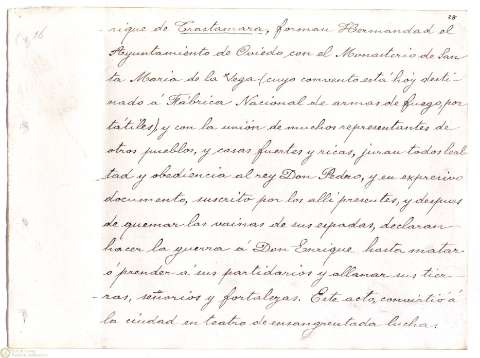 28
rique de Trastamara, forman Hermandad el
Ayuntamiento de Oviedo con el Monasterio de San-
ta Maria de la Vega (cuyo convento está hoy desti-
nado á Fábrica Nacional de armas de fuego por-
tátiles), y con la unión de muchos representantes de
otros pueblos, y casas fuertes y ricas, juran todos leal-
tad y obediencia al rey Don Pedro, y en expresivo
documento, suscrito por los alli presentes, y despues
de quemar las vainas de sus espadas, declaran
hacer la guerra á Don Enrique hasta matar
ó prender a sus partidarios y allanar sus tier-
ras, señorios y fortalezas. Este acto, convirtió á
la ciudad en teatro de ensangrentada lucha.